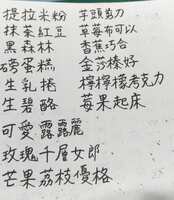 提拉米粉
抹茶紅豆
黑森林
磅蛋糕
生乳捲
生碧酪
可愛露露麗
玫瑰千層女郎
芒果荔枝優格
芋頭克力
草莓布可以
香蕉巧合
金莎榛好
檸檸檬考克力
莓果起床